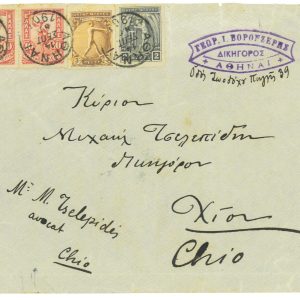 ΓΕΩΡ. Ι. ΒΟΡΟΤΖΕΡΗΣ
ΔΙΚΗΓΟΡΟΣ
ΑΘΗΝΑΙ
Ὁδὸς Ζωοδόχου Πηγῆς 39
Κύριον
Μιχαὴλ Τσελεπίδην
Δικηγόρον
Χίον
Chio
Mr. M. Tselepidés
avocat
Chio
2